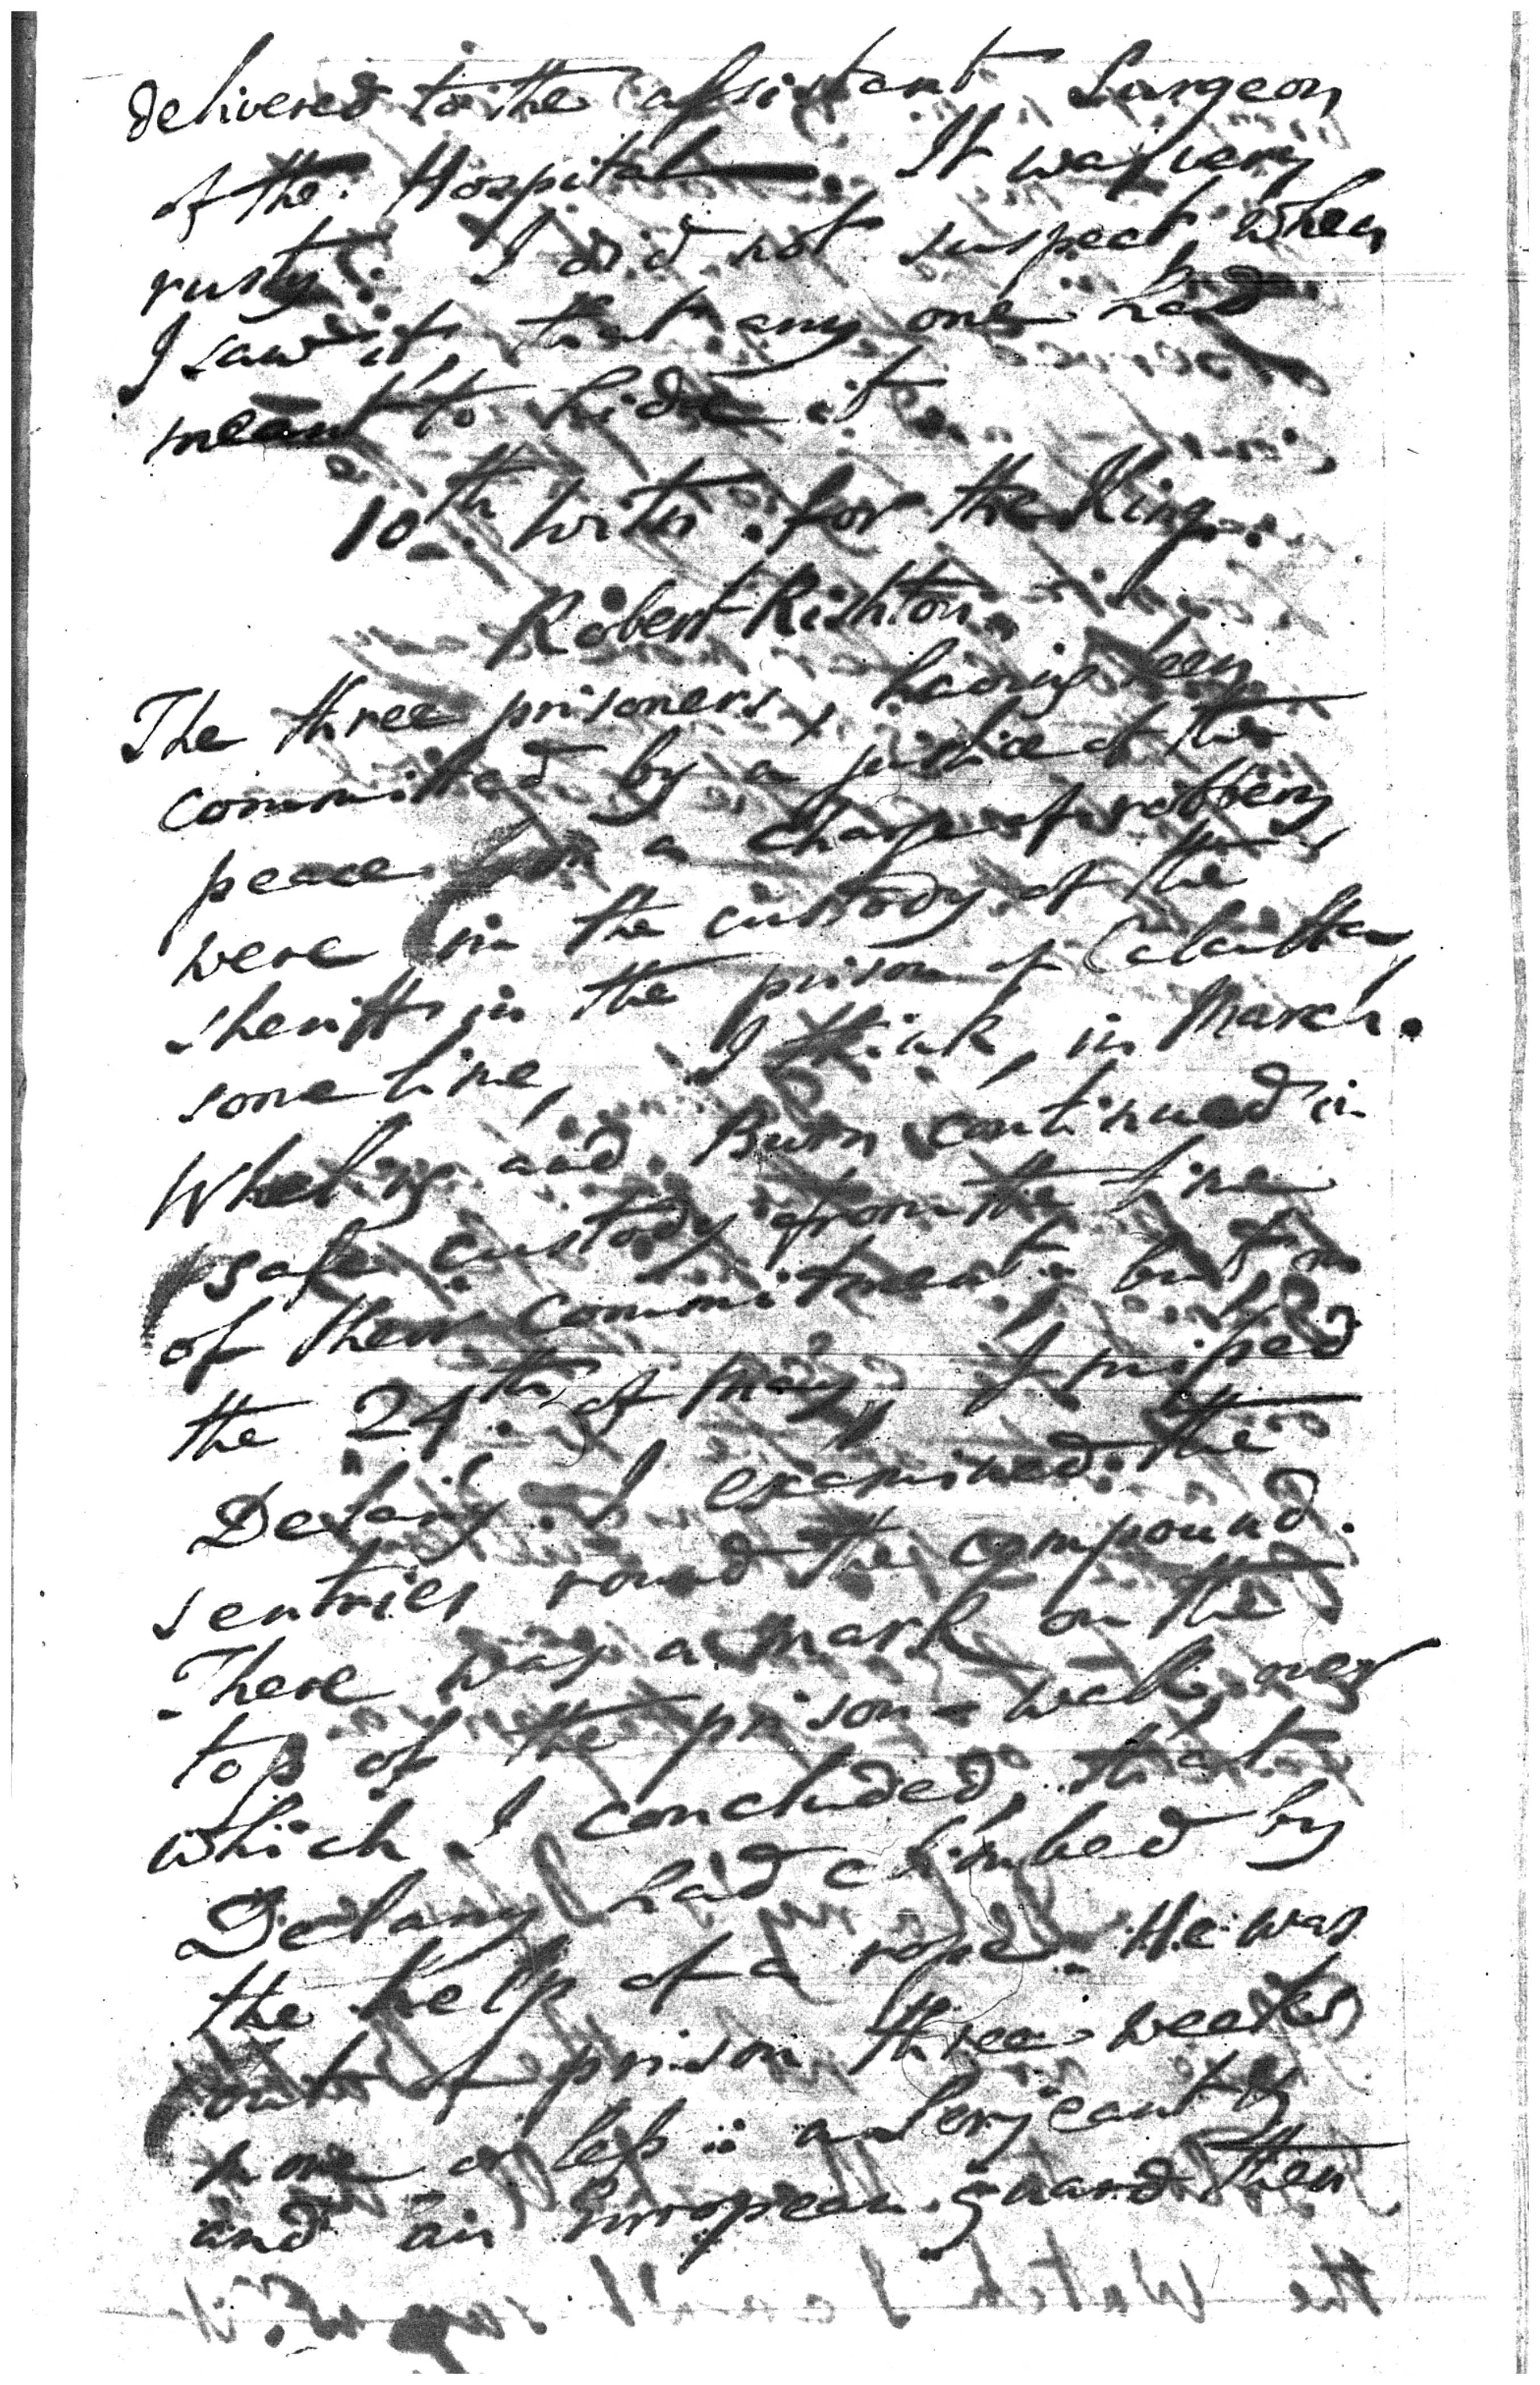 delivered to the assistant Surgeon
of the Hospital. It was very
rusty. I did not suspect, when
I saw it, that any one had
meant to hide it.
10th witn. for the King.
Robert Rishton.
The three prisoners, having been
committed by a justice of the
peace on a charge of robbery,
were in the custody of the
sheriff in the prison of Calcutta,
some time, I think, in March.
Wheling and Burn continued in
safe custody from the time
of their commitment: but on
the 24th of May, I missed
Delany. I examined the
sentries round the compound.
There was a mark on the
top of the prison-wall, over
which I concluded, that
Delany had climbed by
the help of a rope. He was
out of prison three weeks
more or less: a Serjeant
and an European guard then